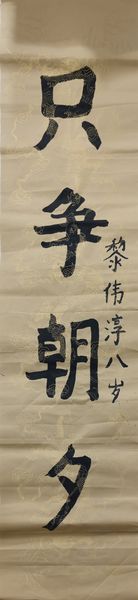 只争朝夕
黎伟淳八岁